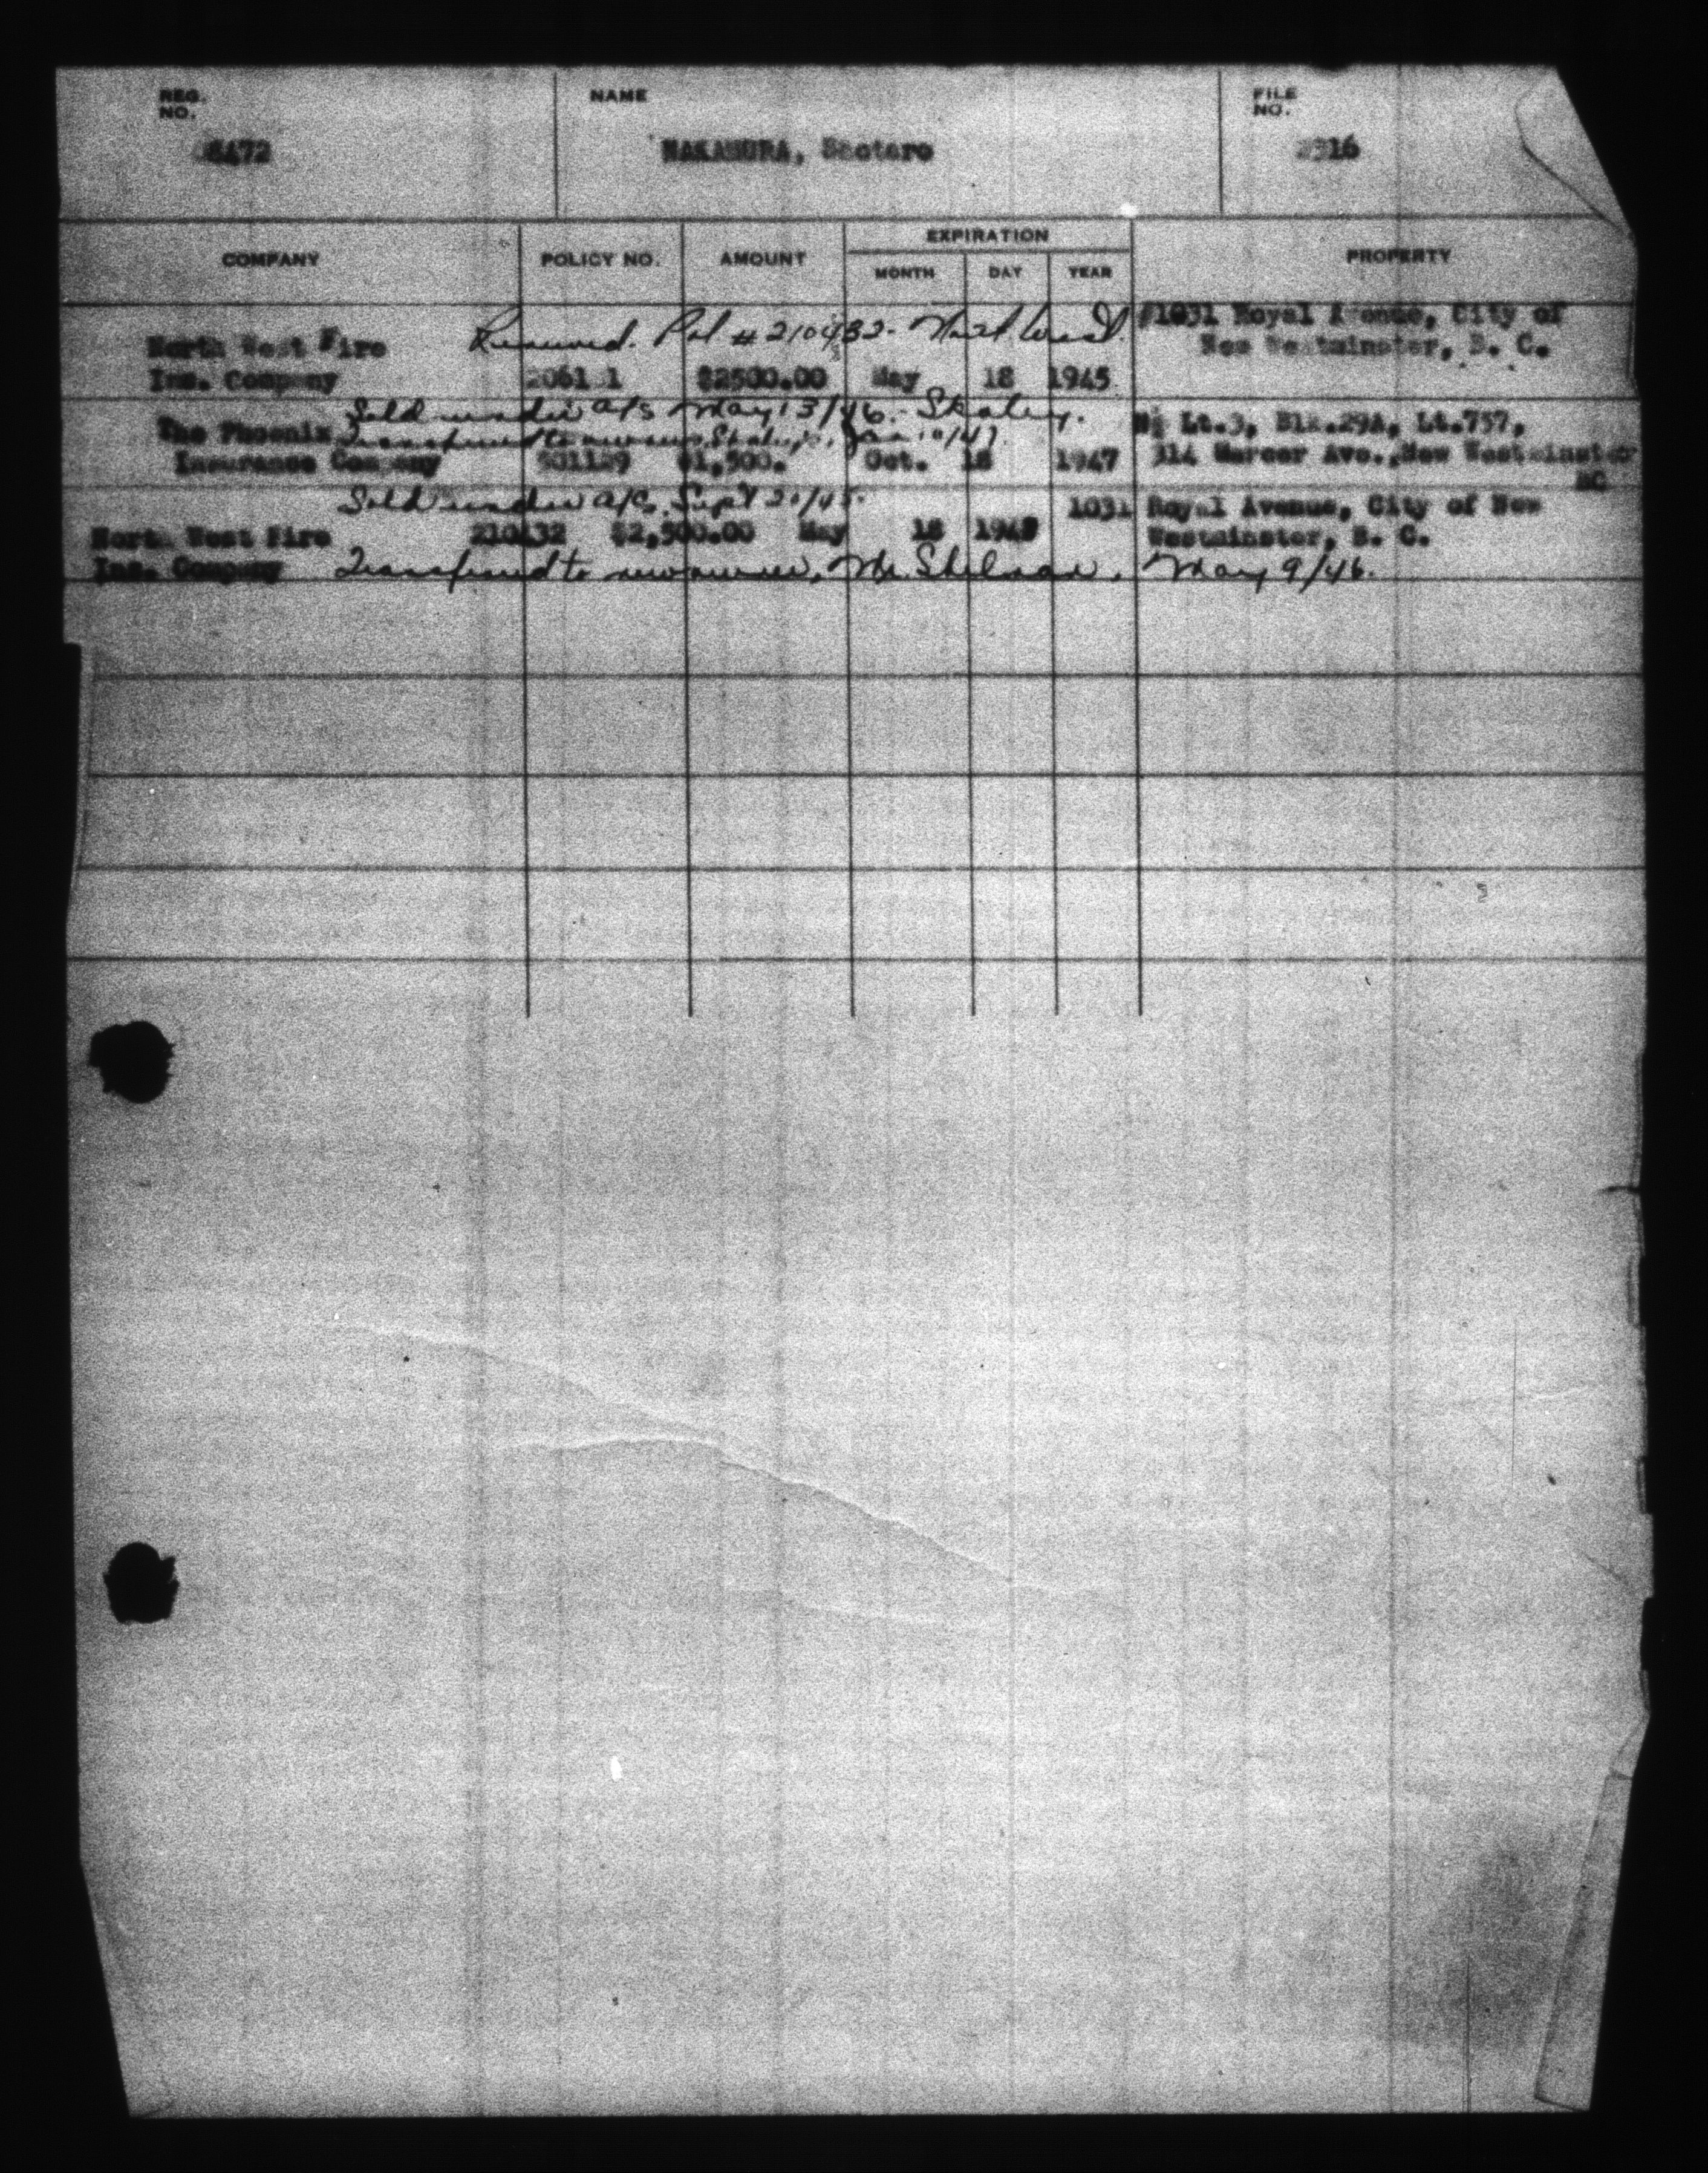 REG. NO. NAME FILE NO.
NAKAMURA, Shotaro
COMPANY POLICY NO. AMOUNT EXPIRATION PROPERTY
MONTH DAY YEAR
Renewed. Pol # 210432 - North West. #1031 Royal Avenue, City of
North West Fire New Westminster, B. C.
Ins. Company $2500.00 May 18 1945
Sold under a/s May 13/46.
The Phoenix Transferred to new owner, Jan 10/47. N½ Lt.3, Blk.29A, Lt.757,
Insurance Company $1,500. Oct. 18 1947 314 Mercer Ave., New Westminster
BC
Sold under a/s. Sept 20/45. 1031 Royal Avenue, City of New
North West Fire 210432 $2,500.00 May 18 Westminster, B. C.
Ins. Company Transferred to new owner, Mr. May 9/46.